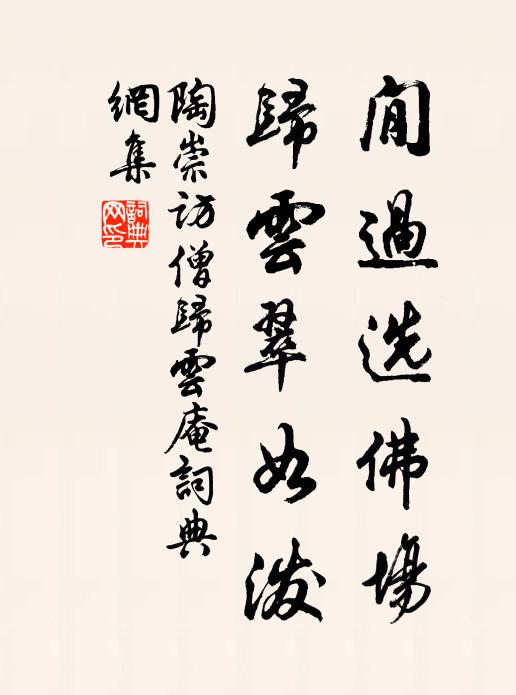 閒過選佛場
歸雲翠如潑
陶崇訪僧歸雲庵詞典
網集
詞典網印